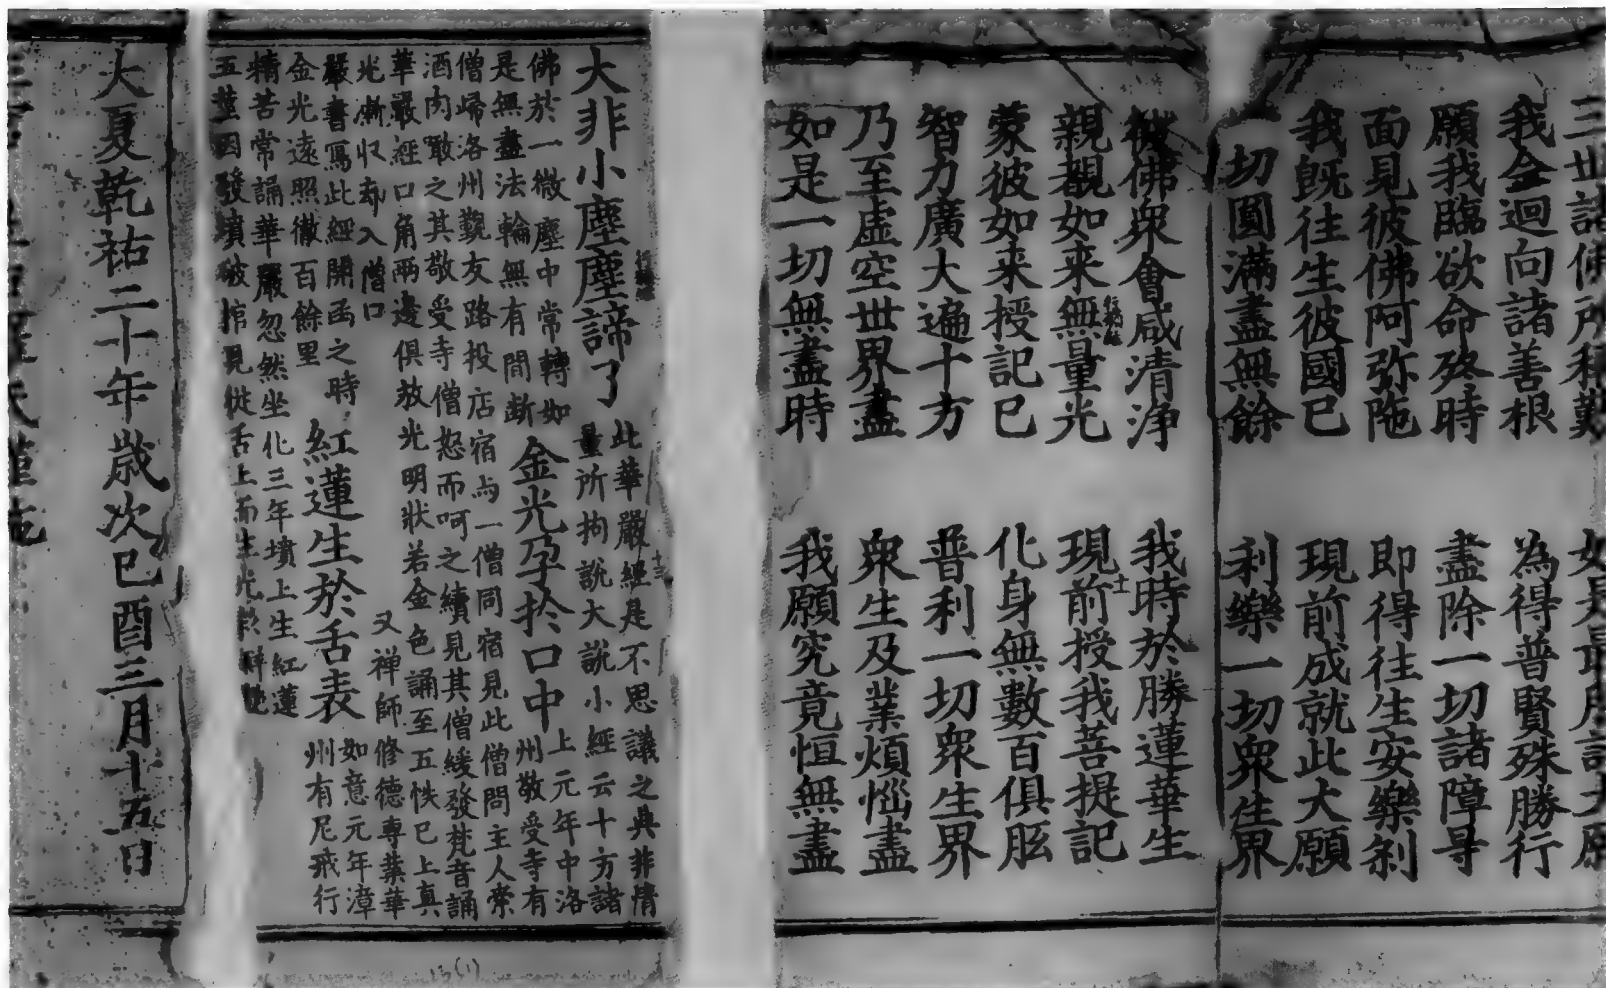 三世諸佛所稱歎 如是最勝諸大願
我今迴向諸善根 為得普賢殊勝行
願我臨欲命終時 盡除一切諸障㝵
面見彼佛阿弥陁 即得往生安樂刹
我既往生彼國已 現前成就此大願
切圓滿盡無餘 利樂一切衆生界
彼佛衆會咸清淨 我時於勝蓮華生
親覩如来無量光 現前授我菩提記
蒙彼如来授記已 化身無數百俱胝
智力廣大遍十方 普利一切衆生界
乃至虛空世界盡 衆生及業煩惱盡
如是一切無盡時 我願究竟恒無盡
大非小塵塵諦了
此華嚴經是不思議之典非情
量所拘說大說小經云十方諸
佛於一微塵中常轉如
是無盡法輪無有間断
金光孕於口中
上元年中洛
州敬受寺有
僧歸洛州覲友路投店宿与一僧同宿見此僧問主人索
酒肉噉之其敬受寺僧恕而呵之續見其僧緩發梵音誦
華嚴經口角兩邊俱放光明狀若金色誦至五帙已上真
光漸収却入僧口
又禅師修德專業華
嚴書寫此經開函之時
金光遠照徹百餘里
紅蓮生於舌表
如意元年漳
州有尼戒行
精苦常誦華嚴忽然坐化三年墳上生紅蓮
五莖因發墳破棺見從舌上而生光 鮮艷
大夏乾祐二十年歲次己酉三月十五日